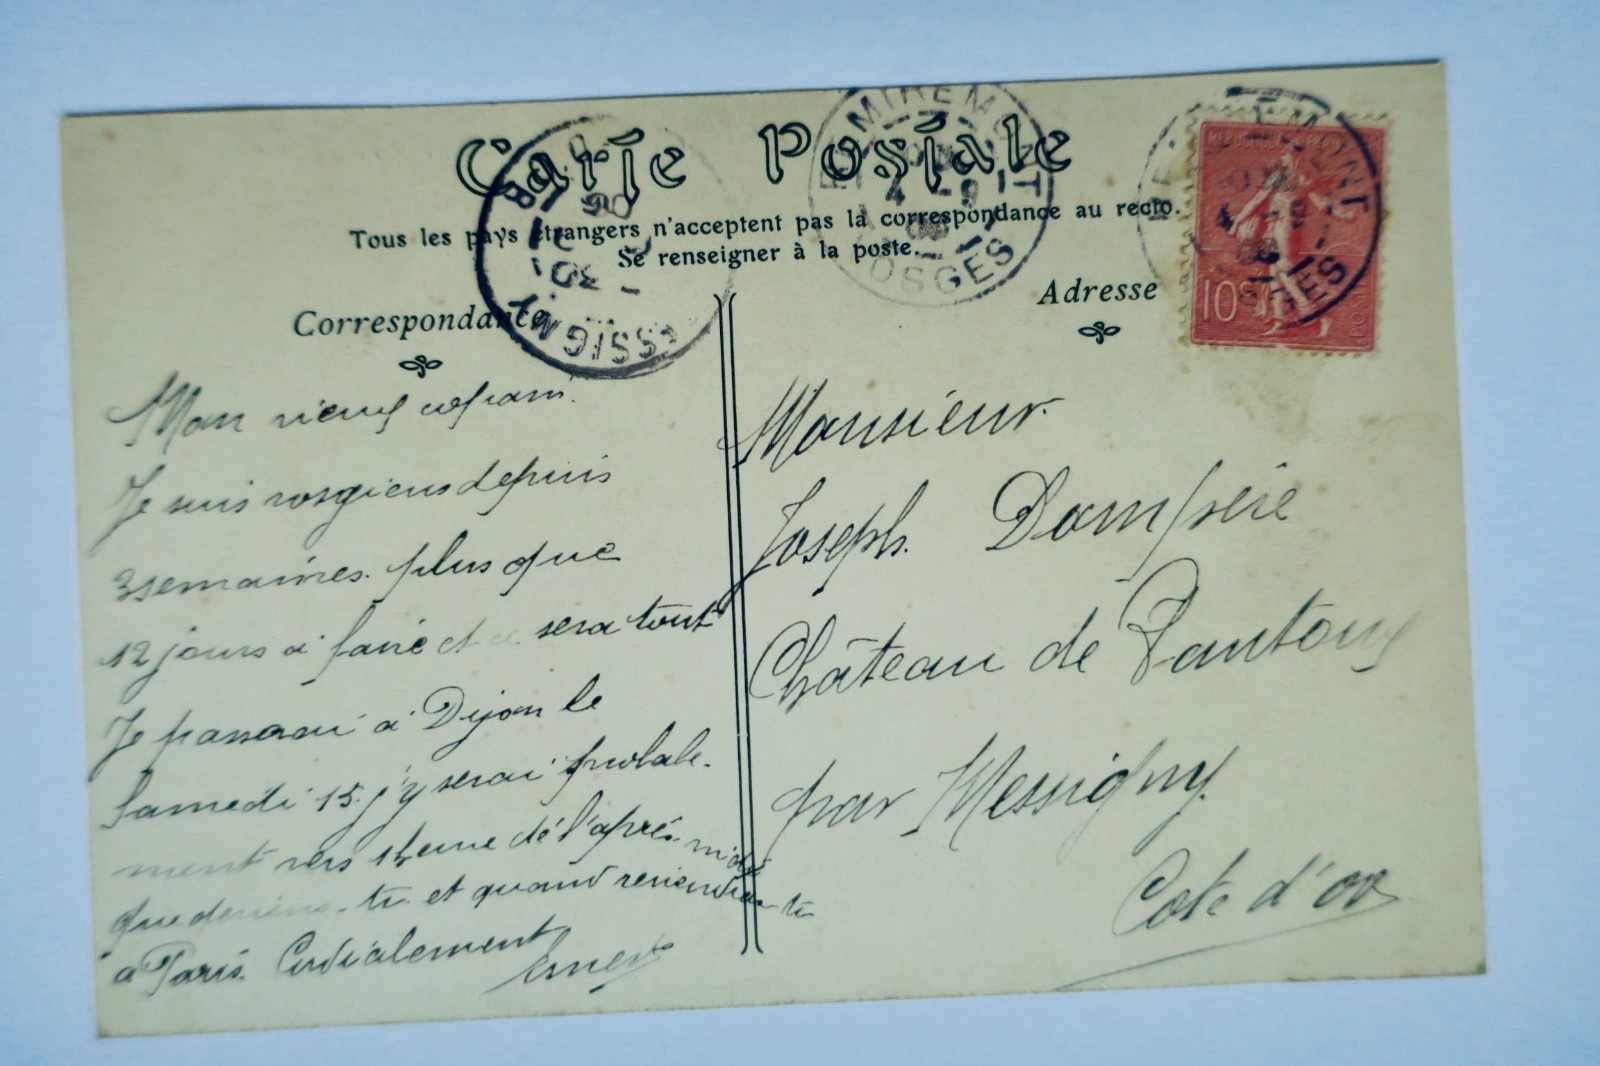 Carte Postale
Tous les pays étrangers n'acceptent pas la correspondance au recto.
Se renseigner à la poste.
Correspondance
Adresse
REMIREMONT
4 -9
VOSGES
REPUBLIQUE FRANÇAISE
10c
POSTES
Mon vieux copain.
Je suis vosgiens depuis
3 semaines. plus que
12 jours à faire et ce sera tout
Je passerai à Dijon le
Samedi 15. j'y serai probable-
ment vers 1 heure de l'après-midi
que deviens-tu et quand reviendras-tu
à Paris. Cordialement
Ernest
Monsieur
Joseph Dampfeire
Château de Vantoux
par Messigny
Cote d'or